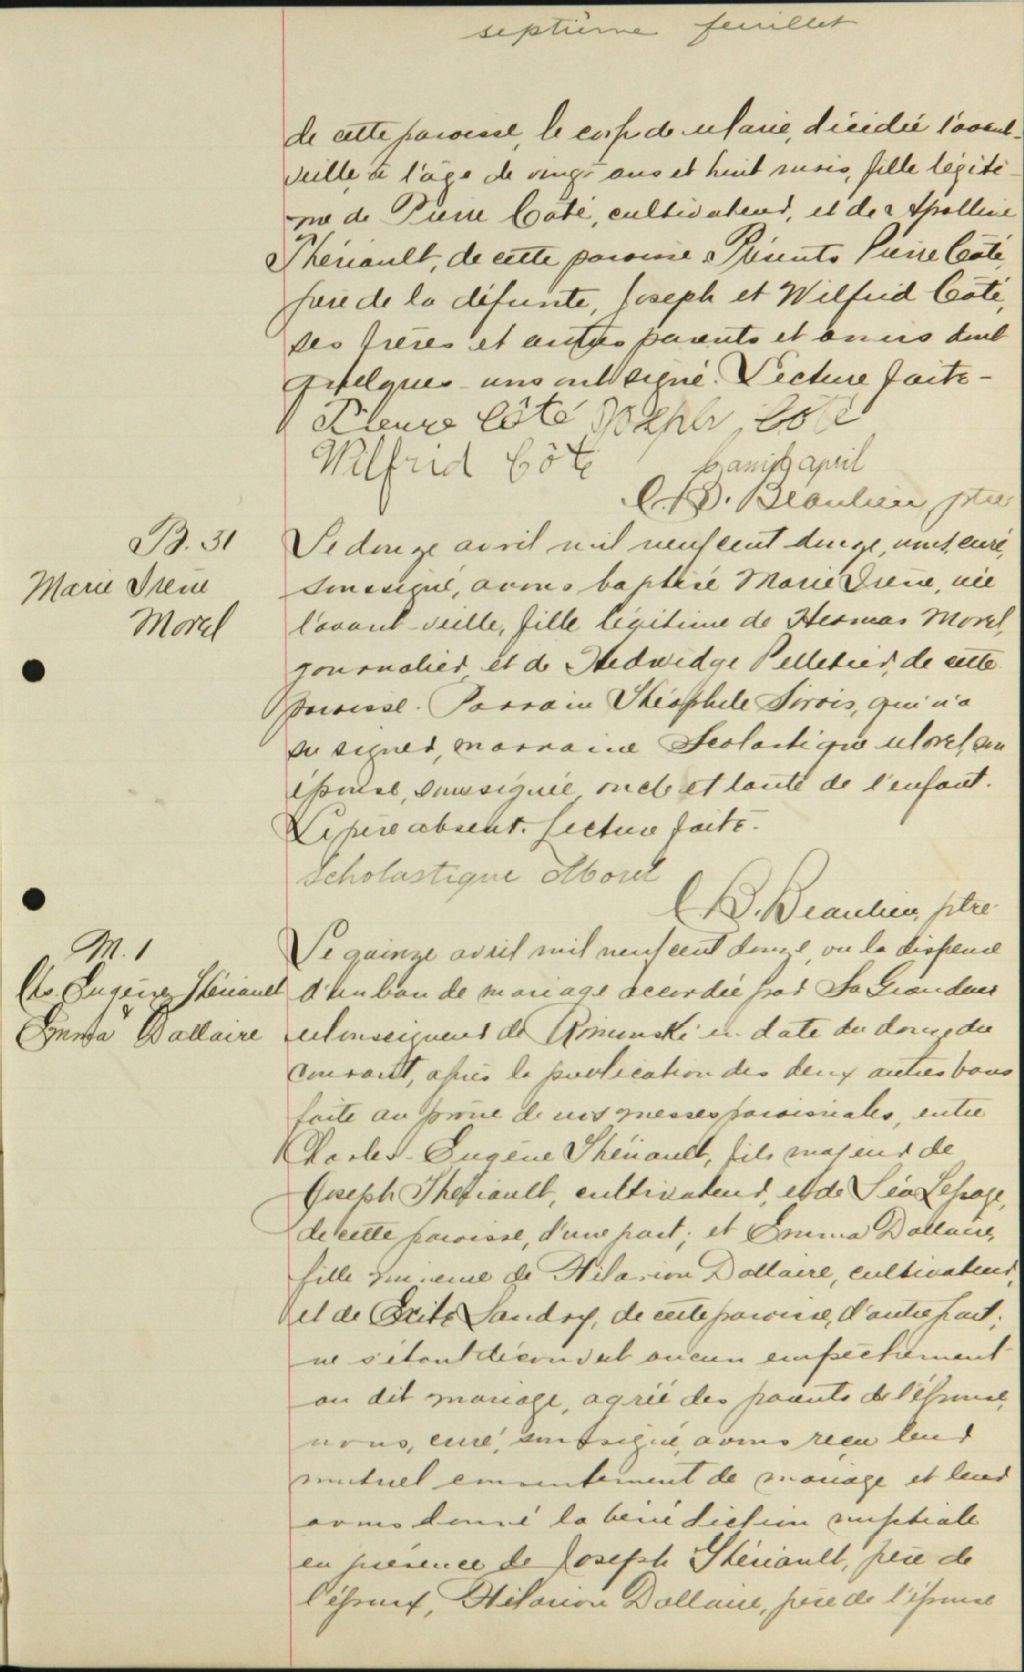 septième feuillet
de cette paroisse, le corps de Marie, décédée l'avant-
veille, à l'âge de vingt ans et huit mois, fille légiti-
me de Pierre Côté, cultivateur, et de Apolline
Thériault, de cette paroisse. Présents Pierre Côté,
père de la défunte, Joseph et Wilfrid Côté,
ses frères et autres parents et amis dont
quelques-uns ont signé. Lecture faite-
Pierre Côté Joseph Côté
Wilfrid Côté
C.B. Beaulieu, ptre
B. 31
Marie Irène
Morel
Le douze avril mil neuf cent douze, nous, curé,
soussigné, avons baptisé Marie Irène, née
l'avant-veille, fille légitime de Hermas Morel,
journalier, et de Hedwidge Pelletier, de cette
paroisse. Parrain Théophile Sirois, qui n'a
su signer, marraine Scolastique Morel son
épouse, soussignée, oncle et tante de l'enfant.
Le père absent. Lecture faite.
Scholastique Morel
C B. Beaulieu, ptre
M. 1
Chs Eugène Thériault
&
Emma Dallaire
Le quinze avril mil neuf cent douze, vu la dispense
d'un ban de mariage accordée par Sa Grandeur
Monseigneur de Rimouski en date du douze du
courant, après la publication des deux autres bans
faite au prône de nos messes paroissiales, entre
Charles-Eugène Thériault, fils majeur de
Joseph Thériault, cultivateur, et de Léa Lepage,
de cette paroisse, d'une part; et Emma Dallaire,
fille mineure de Hilarion Dallaire, cultivateur,
et de Landry, de cette paroisse, d'autre part;
ne s'étant découvert aucun empêchement
au dit mariage, agréé des parents de l'épouse,
nous, curé, soussigné, avons reçu leur
mutuel consentement de mariage et leur
avons donné la bénédiction nuptiale
en présence de Joseph Thériault, père de
l'époux, Hilarion Dallaire, père de l'épouse